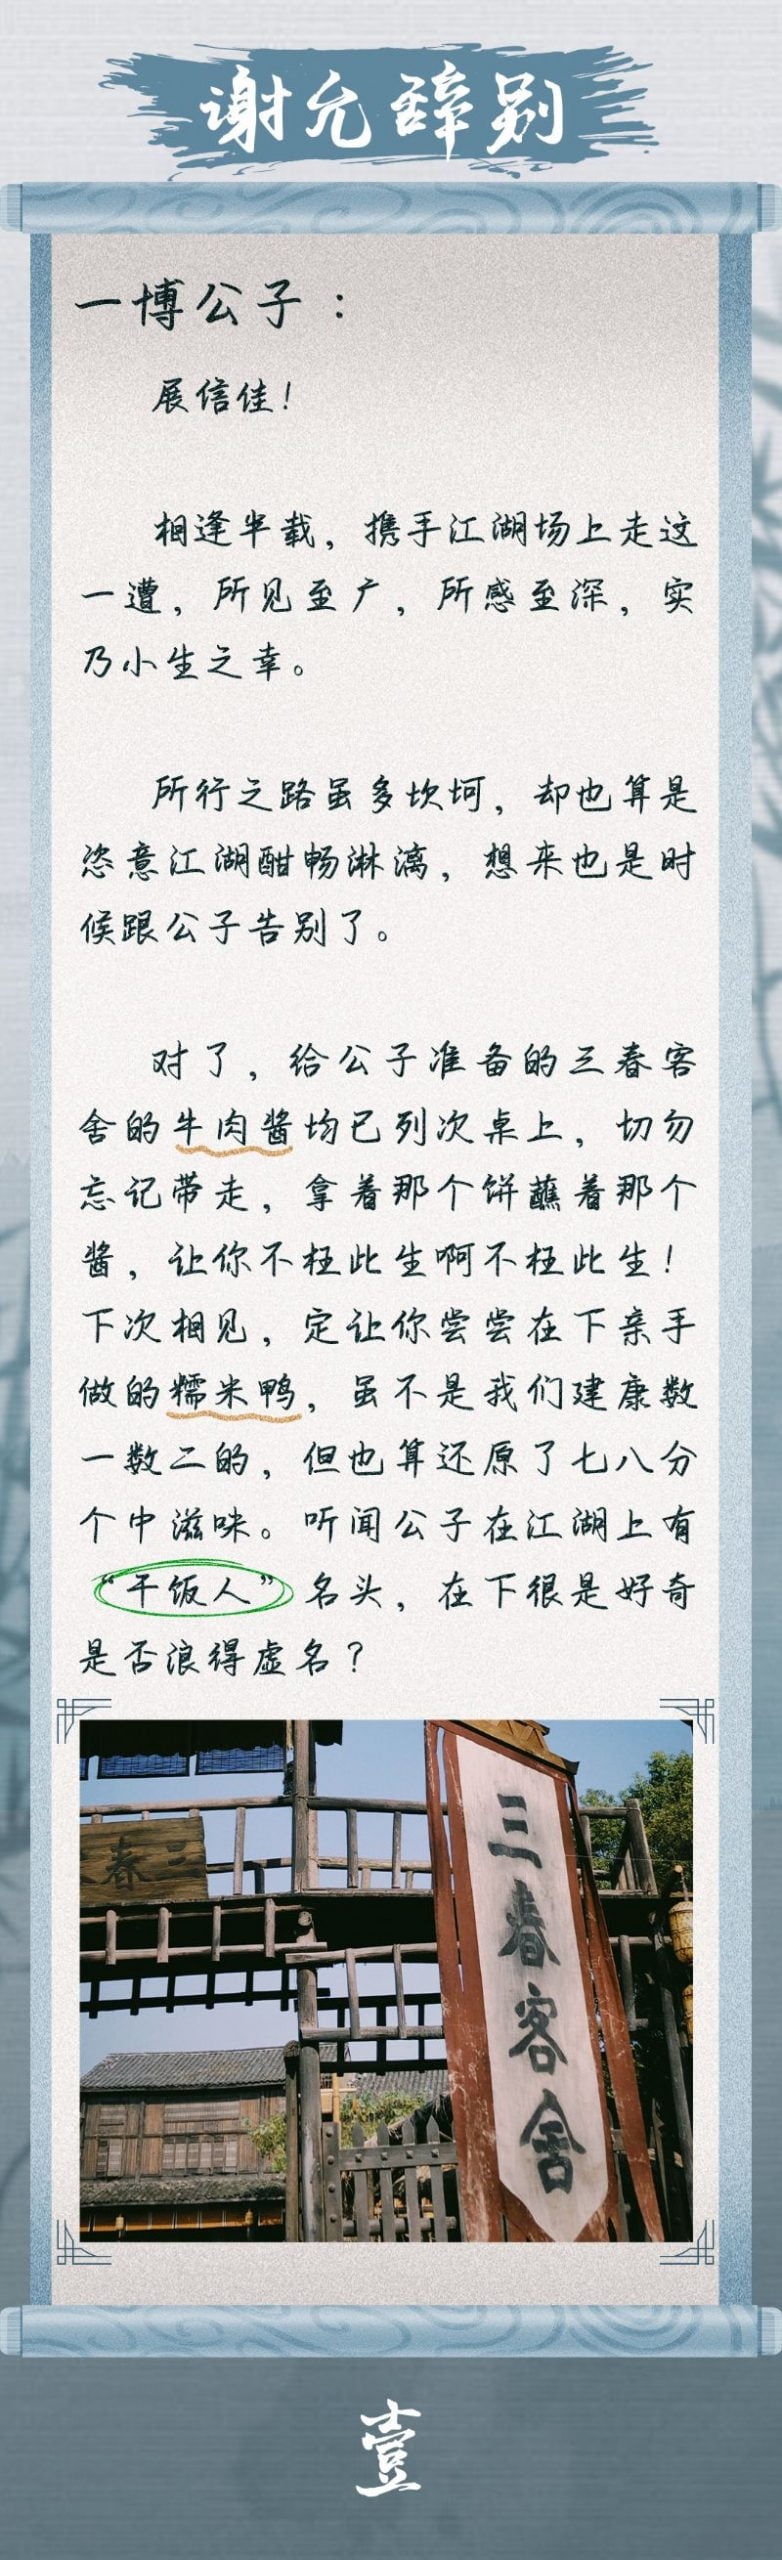 谢允辞别
一博公子：
展信佳！
相逢半载，携手江湖场上走这
一遭，所见至广，所感至深，实
乃小生之幸。
所行之路虽多坎坷，却也算是
恣意江湖酣畅淋漓，想来也是时
候跟公子告别了。
对了，给公子准备的三春客
舍的牛肉酱均已列次桌上，切勿
忘记带走，拿着那个饼蘸着那个
酱，让你不枉此生啊不枉此生！
下次相见，定让你尝尝在下亲手
做的糯米鸭，虽不是我们建康数
一数二的，但也算还原了七八分
个中滋味。听闻公子在江湖上有
“干饭人”名头，在下很是好奇
是否浪得虚名？
三春
三春客舍
壹